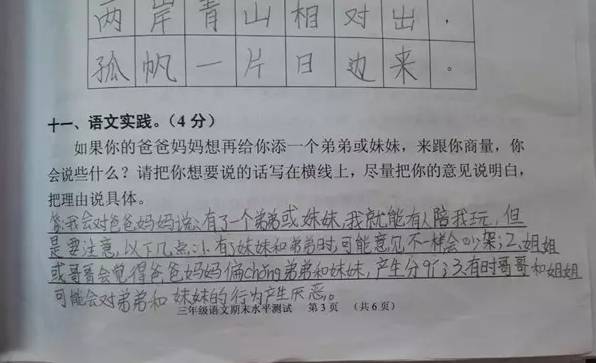 两岸青山相对出，
孤帆一片日边来。
十一、语文实践。（4分）
如果你的爸爸妈妈想再给你添一个弟弟或妹妹，来跟你商量，你
会说些什么？请把你想要说的话写在横线上，尽量把你的意见说明白，
把理由说具体。
答：我会对爸爸妈妈说：有了一个弟弟或妹妹，我就能有人陪我玩，但
是要注意，以下几点：1.有了妹妹和弟弟时，可能意见不一样会吵架；2.姐姐
或哥哥会觉得爸爸妈妈偏chǒng弟弟和妹妹，产生分歧；3.有时哥哥和姐姐
可能会对弟弟和妹妹的行为产生厌恶。
三年级语文期末水平测试 第3页 （共6页）